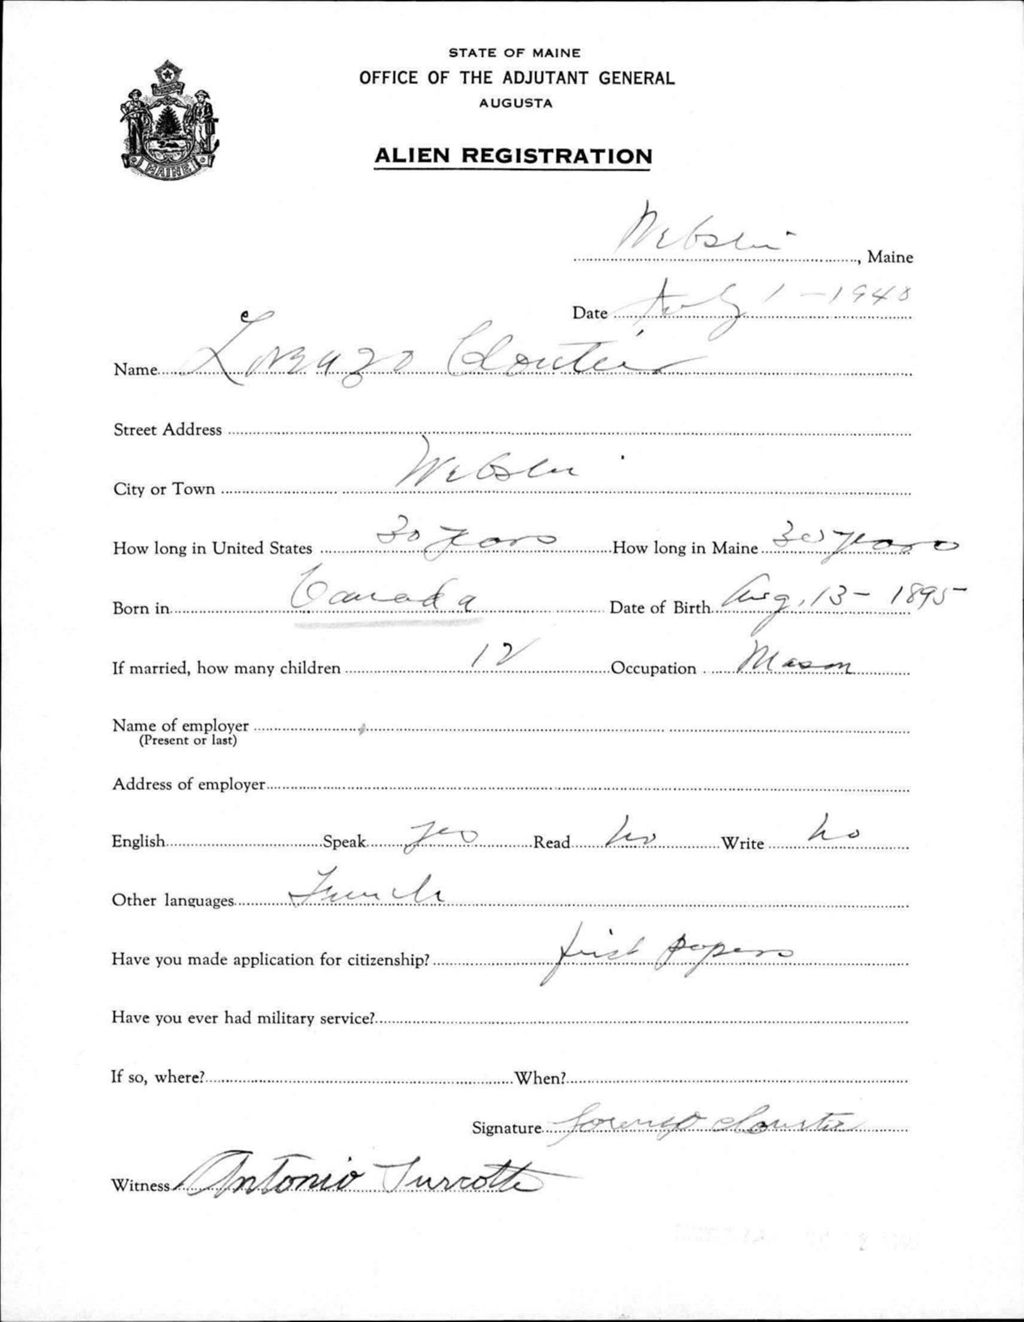 STATE OF MAINE
OFFICE OF THE ADJUTANT GENERAL
AUGUSTA
MAINE
ALIEN REGISTRATION
Webster, Maine
Date July 1-1940
Name Lorenzo Cloutier
Street Address
City or Town Webster
How long in United States 30 years How long in Maine 30 years
Born in Canada Date of Birth Aug, 13-1895
If married, how many children 12 Occupation Mason
Name of employer
(Present or last)
Address of employer
English Speak yes Read no Write no
Other languages French
Have you made application for citizenship? first papers
Have you ever had military service?
If so, where? When?
Signature Lorenzo Cloutier
Witness Antonio Turcotte